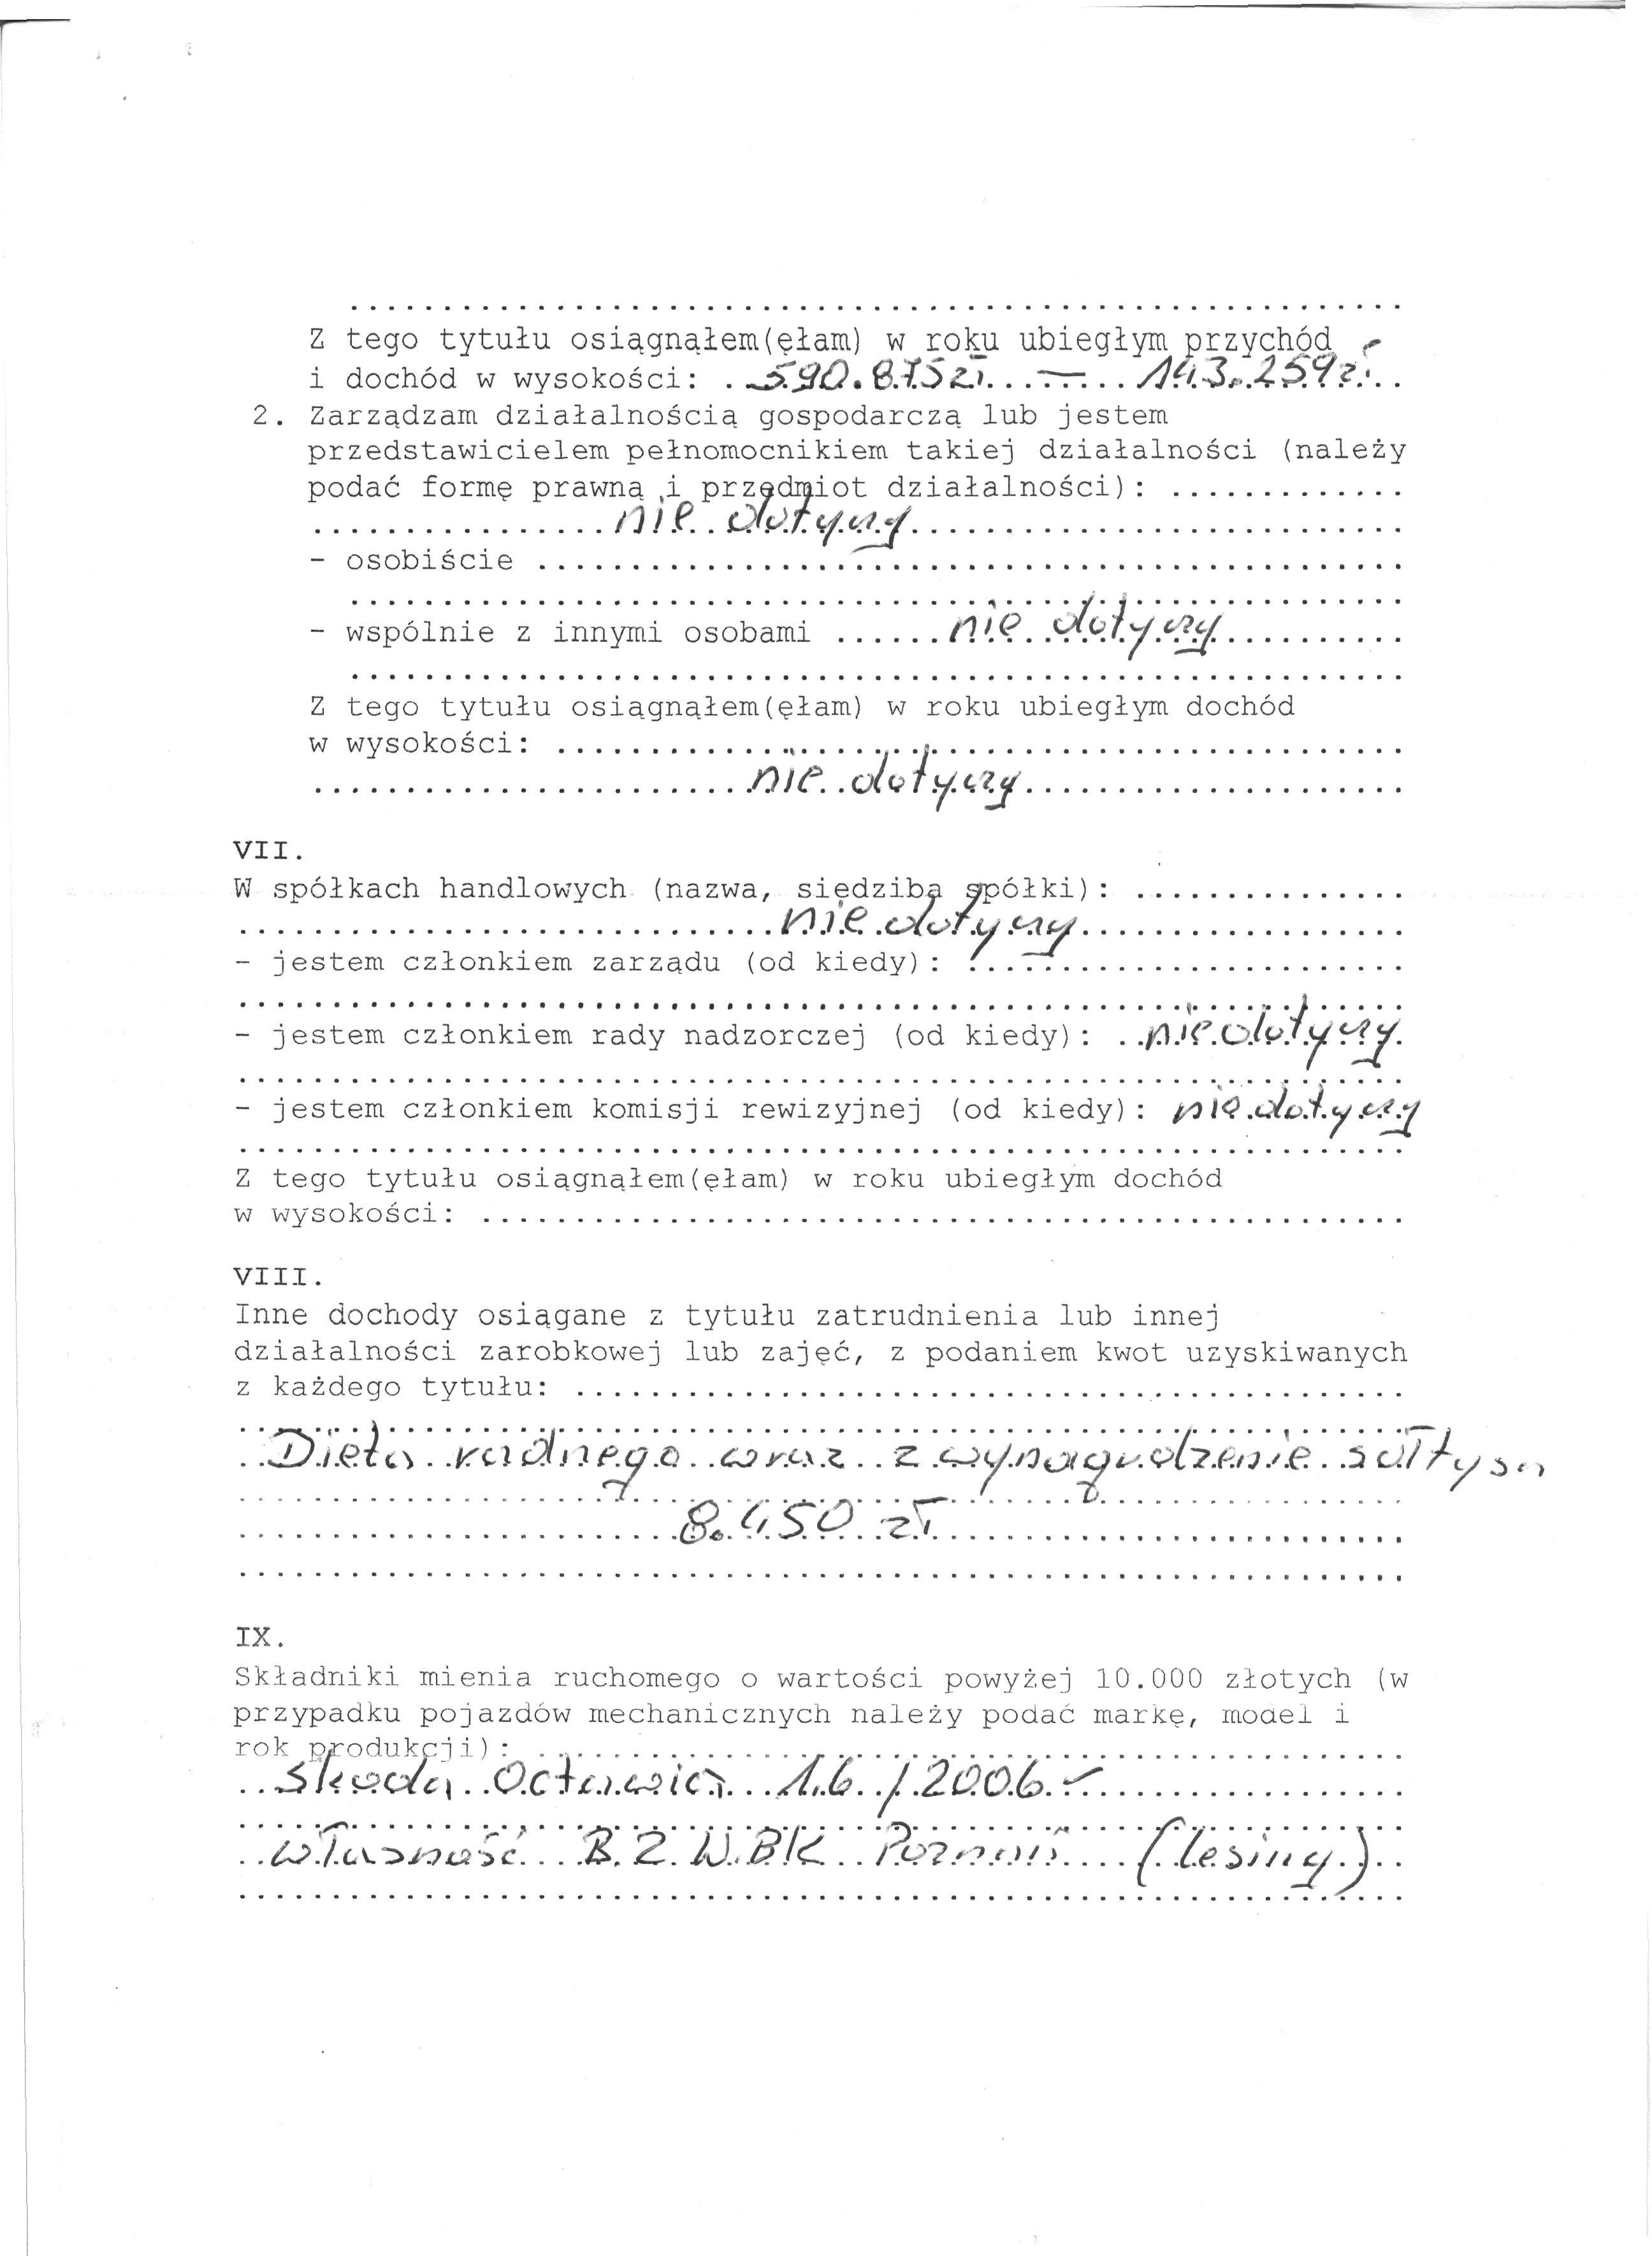 Z tego tytułu osiągnąłem(ęłam) w roku ubiegłym przychód
i dochód w wysokości: 590.875 zł — 143.259 zł
2. Zarządzam działalnością gospodarczą lub jestem
przedstawicielem pełnomocnikiem takiej działalności (należy
podać formę prawną i przedmiot działalności):
nie dotyczy
- osobiście
- wspólnie z innymi osobami nie dotyczy
Z tego tytułu osiągnąłem(ęłam) w roku ubiegłym dochód
w wysokości:
nie dotyczy
VII.
W spółkach handlowych (nazwa, siedziba spółki):
nie dotyczy
- jestem członkiem zarządu (od kiedy):
- jestem członkiem rady nadzorczej (od kiedy): nie dotyczy
- jestem członkiem komisji rewizyjnej (od kiedy): nie dotyczy
Z tego tytułu osiągnąłem(ęłam) w roku ubiegłym dochód
w wysokości:
VIII.
Inne dochody osiągane z tytułu zatrudnienia lub innej
działalności zarobkowej lub zajęć, z podaniem kwot uzyskiwanych
z każdego tytułu:
Dieta radnego wraz z wynagrodzenie sołtysa
8.450 zł
IX.
Składniki mienia ruchomego o wartości powyżej 10.000 złotych (w
przypadku pojazdów mechanicznych należy podać markę, model i
rok produkcji):
Skoda Octawia 1.6 / 2006 r
własność B.Z.W.B.K Poznań (lesing)